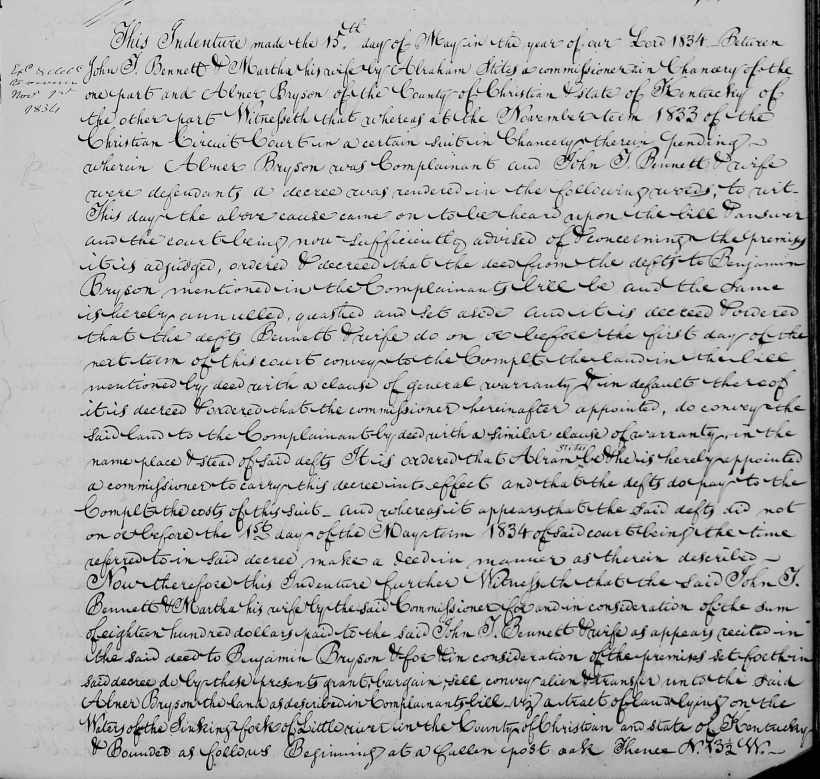 This Indenture made the 15th day of May in the year of our Lord 1834 Between
Exd & deld
to
Novr 1st
1834
John T. Bennett & Martha his wife by Abraham Stites a commissioner in Chancery of the
one part and Abner Bryson of the County of Christian & state of Kentucky of
the other part Witnesseth that whereas at the November term 1833 of the
Christian Circuit Court in a certain suit in Chancery therein pending
wherein Abner Bryson was Complainant and John T. Bennett & wife
were defendants a decree was rendered in the following words, to wit.
This day the above cause came on to be heard upon the bill & answer
and the court being now sufficiently advised of & concerning the premises
it is adjudged, ordered & decreed that the deed from the defts to Benjamin
Bryson mentioned in the Complainants bill be and the same
is hereby annulled, quashed and set aside and it is decreed & ordered
that the defts Bennett & wife do on or before the first day of the
next term of this court convey to the Complt the land in the bill
mentioned by deed with a clause of general warranty & in default thereof
it is decreed & ordered that the commissioner hereinafter appointed, do convey the
said land to the Complainant by deed with a similar clause of warranty, in the
name place & stead of said defts It is ordered that Abram Stites be & he is hereby appointed
a commissioner to carry this decree into effect and that the defts do pay to the
Complt the costs of this suit - and whereas it appears that the said defts did not
on or before the 1st day of the May term 1834 of said court being the time
referred to in said decree make a deed in manner as therein described -
Now therefore this Indenture further Witnesseth that the said John T.
Bennett & Martha his wife by the said Commissioner for and in consideration of the sum
of eighteen hundred dollars paid to the said John T. Bennett & wife as appears recited in
the said deed to Benjamin Bryson & for & in consideration of the premises set forth in
said decree do by these presents grant, bargain, sell convey alien & transfer unto the said
Abner Bryson the land as described in Complainants bill viz a tract of land lying on the
Waters of the Sinking fork of Little river in the County of Christian and state of Kentucky
& Bounded as follows Beginning at a fallen post oak Thence N. 13½ W. -